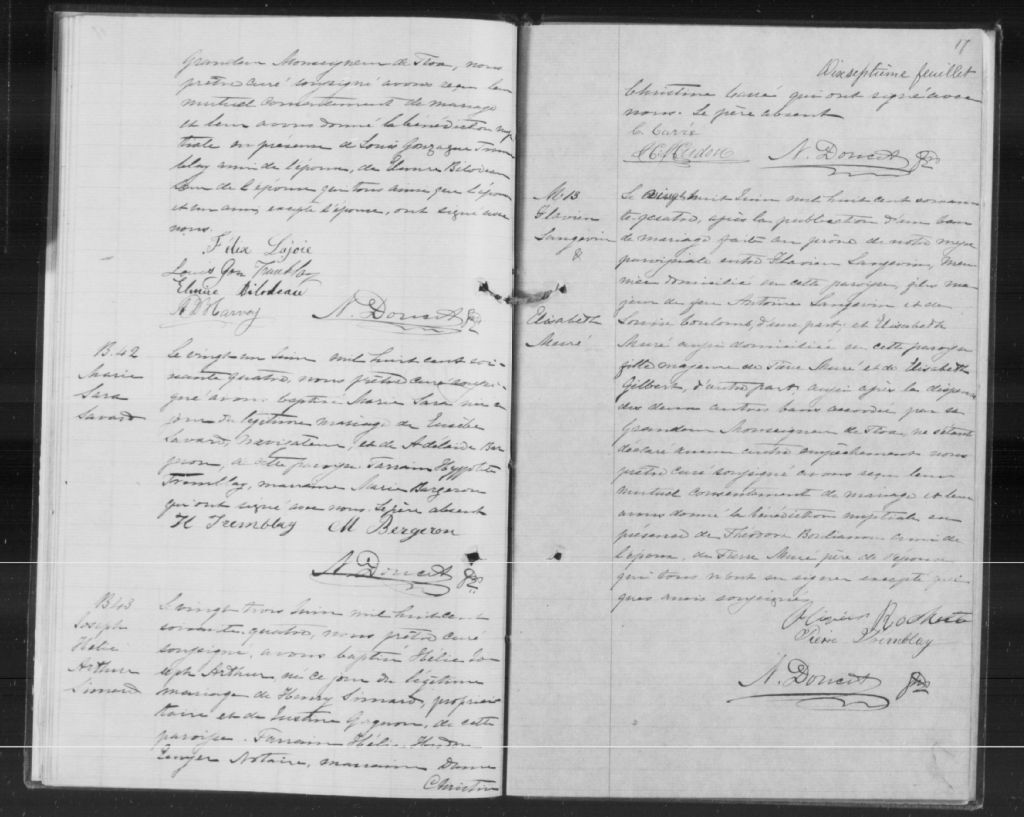 Grandeur Monseigneur de Tloa, nous
prêtre curé soussigné avons reçu leur
mutuel consentement de mariage
et leur avons donné la bénédiction nup
tiale en présence de Louis Gonzague Trem
blay ami de l'épouse, de Elmire Bilodeau
de l'épouse qui tous ainsi que l'époux
et un ami, excepté l'épouse, ont signé avec
nous.
Félix Lajoie
Louis Gon Tremblay
Elmire Bilodeau
N. Doucet Ptre
B. 42
Marie
Sara
Savard
Le vingt un Juin mil huit cent soi-
xante quatre, nous prêtre curé soussi-
gné avons baptisé Marie Sara née ce
jour du légitime mariage de Eusèbe
Savard, Navigateur, et de Adélaïde Ber
geron, de cette paroisse. Parrain Hyppolite
Tremblay, marraine Marie Bergeron
qui ont signé avec nous. Le père absent
H Tremblay M Bergeron
N. Doucet Ptre
B. 43
Joseph
Hélie
Arthur
Simard
Le vingt trois Juin mil huit cent
soixante quatre, nous prêtre curé
soussigné, avons baptisé Hélie Jo
seph Arthur, né ce jour du légitime
mariage de Henry Simard, proprié
taire et de Justine Gagnon, de cette
paroisse. Parrain Hélie Hudon
Notaire, marraine Dame
Christine
17
Dix septième feuillet
Christine Carré qui ont signé avec
nous. Le père absent
C. Carré
Hudon N. Doucet Ptre
M. 13
Flavien
Langevin
&
Elisabeth
Muré
Le vingt huit Juin mil huit cent soixan
te-quatre, après la publication d'un ban
de mariage faite au prône de notre messe
paroissiale entre Flavien Langevin, Meu
nier domicilié en cette paroisse, fils ma
jeur de feu Antoine Langevin et de
Louise Coulomb, d'une part; et Elisabeth
Muré aussi domiciliée en cette paroisse
fille majeure de Pierre Muré et de Elisabeth
Gilbert, d'autre part aussi après la dispense
des deux autres bans accordée par sa
Grandeur Monseigneur de Tloa, ne s'étant
déclaré aucun autre empêchement nous
prêtre curé soussigné avons reçu leur
mutuel consentement de mariage et leur
avons donné la bénédiction nuptiale en
présence de Théodore Boulianne ami de
l'époux, de Pierre Muré père de l'épouse
qui tous n'ont su signer excepté quel
ques amis soussignés
Pierre Tremblay
N. Doucet Ptre